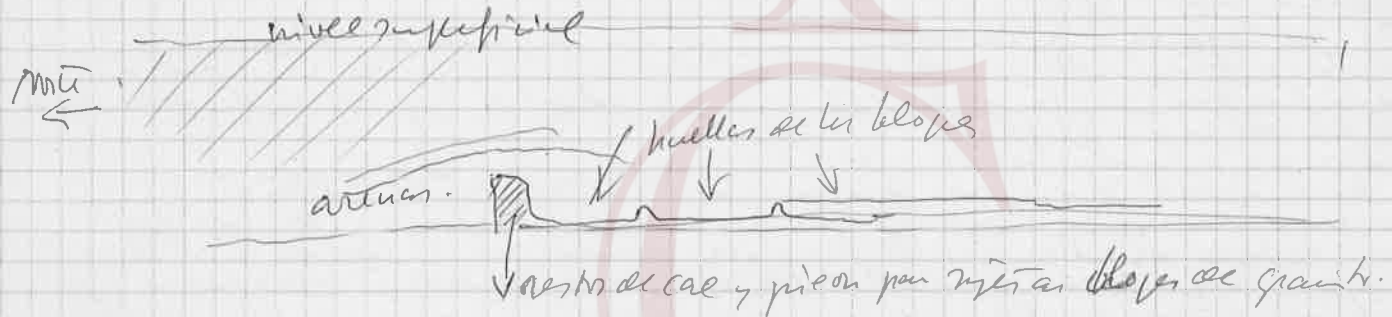 nivel superficial
Norte
huellas de los bloques
arenas.
restos de cal y piedra para sujetar bloques de granito.